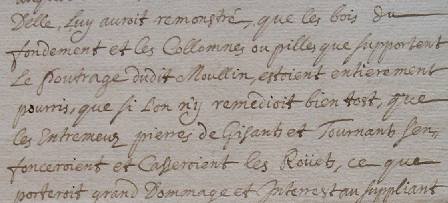 Delle, Luy auroit remonstré, que les bois du
fondement et les Collomnes ou pilles que supportent
Le Poutrage dudit Moullin, estoient entierement
pourris, que si Lon n'y remedioit bien tost, que
les Entremeuz pierres de Gisants et Tournants sen,
fonceroient et Casseroient les Roüets, ce que
porteroit grand Dommage et Interest au suppliant